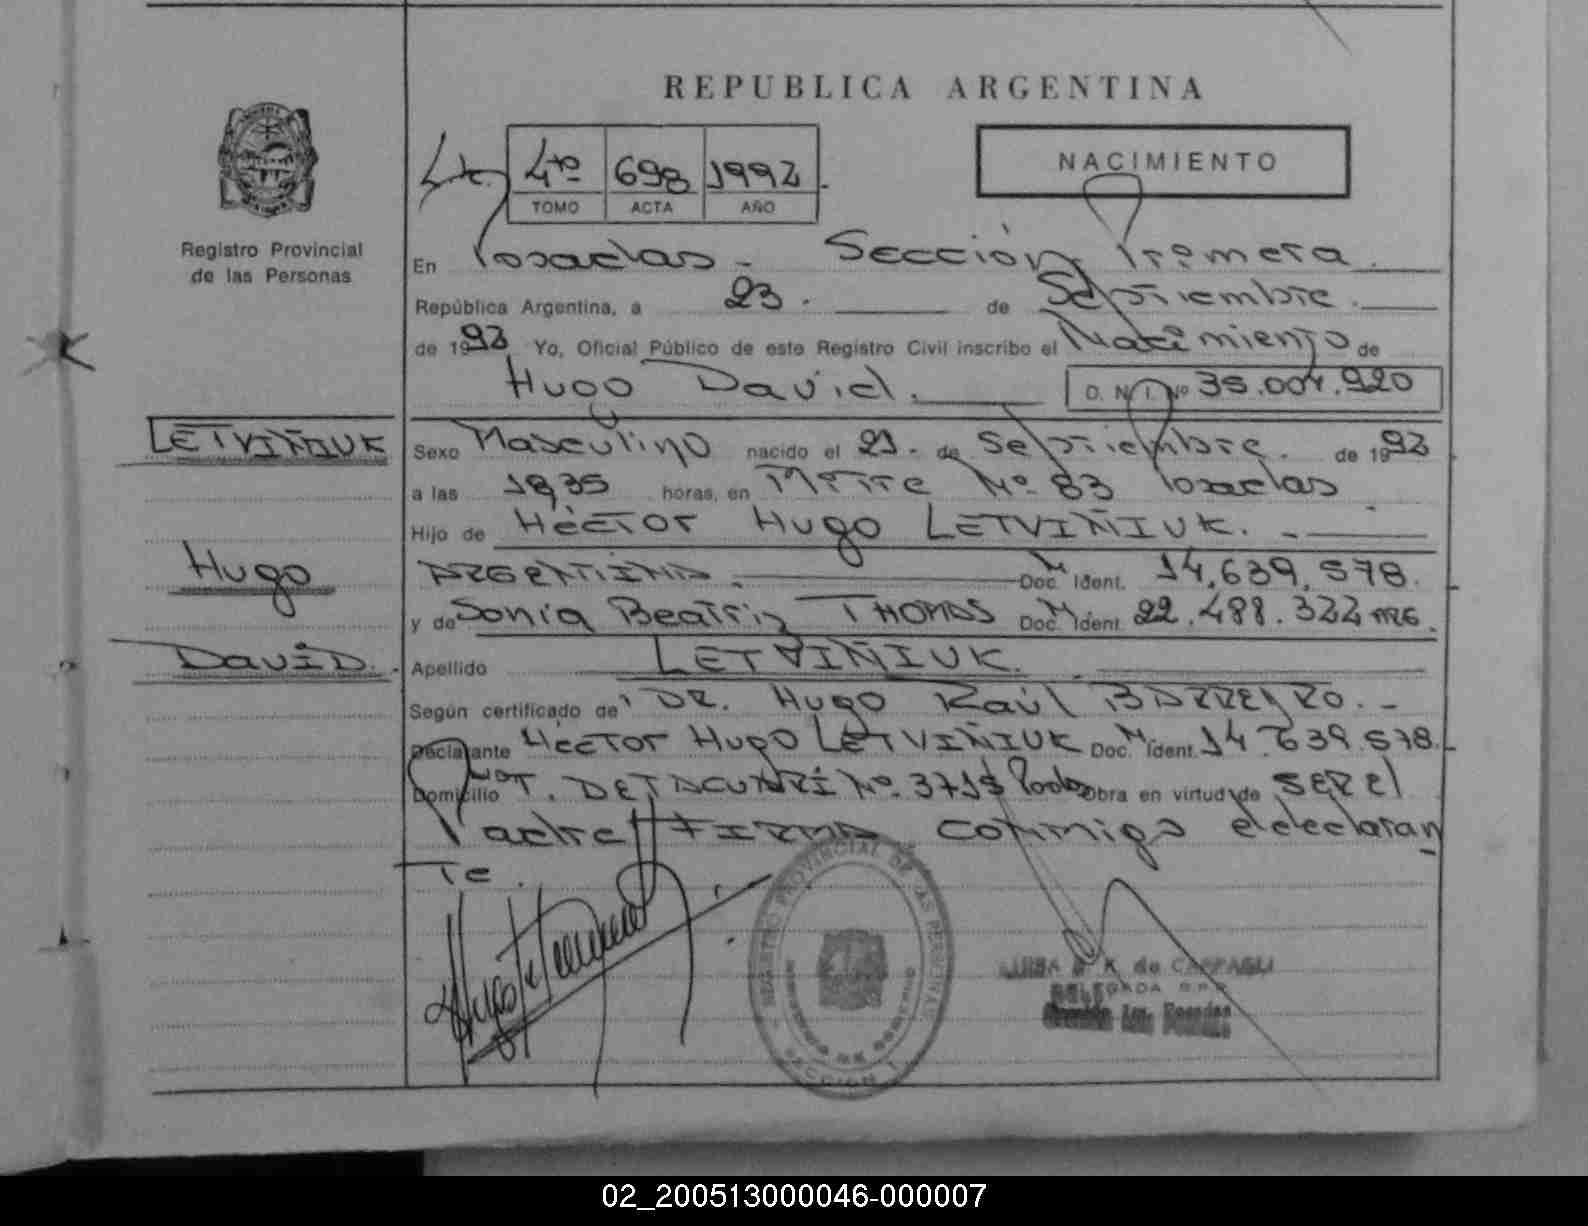 REPUBLICA ARGENTINA
4to 698 1992
TOMO ACTA AÑO
NACIMIENTO
Registro Provincial
de las Personas
En Posadas - Sección Primera
República Argentina, a 23. de Septiembre.
de 1992 Yo, Oficial Público de este Registro Civil inscribo el Nacimiento de
Hugo David. D. N. I. Nº 35.004.920
LETVIÑIUK
Sexo Masculino nacido el 21. de Septiembre. de 1992
a las 18,35 horas, en Mitre Nº 83 Posadas
Hijo de Héctor Hugo LETVIÑIUK. -
Hugo
ARGENTINA Doc. M Ident. 14,639,578.
y de Sonia Beatriz THOMAS Doc. M Ident. 22.488.322
David.
Apellido LETVIÑIUK.
Según certificado de DR. Hugo Raúl BARREYRO. -
Declarante Héctor Hugo LETVIÑIUK Doc. M Ident. 14.639.578.
Domicilio Nº. Obra en virtud de SER el
Padre FIRMA conmigo el declaran
Te.
REGISTRO PROVINCIAL DE LAS PERSONAS
SECCION 1
LUISA K. de CAPPAGLI
DELEGADA
02_200513000046-000007